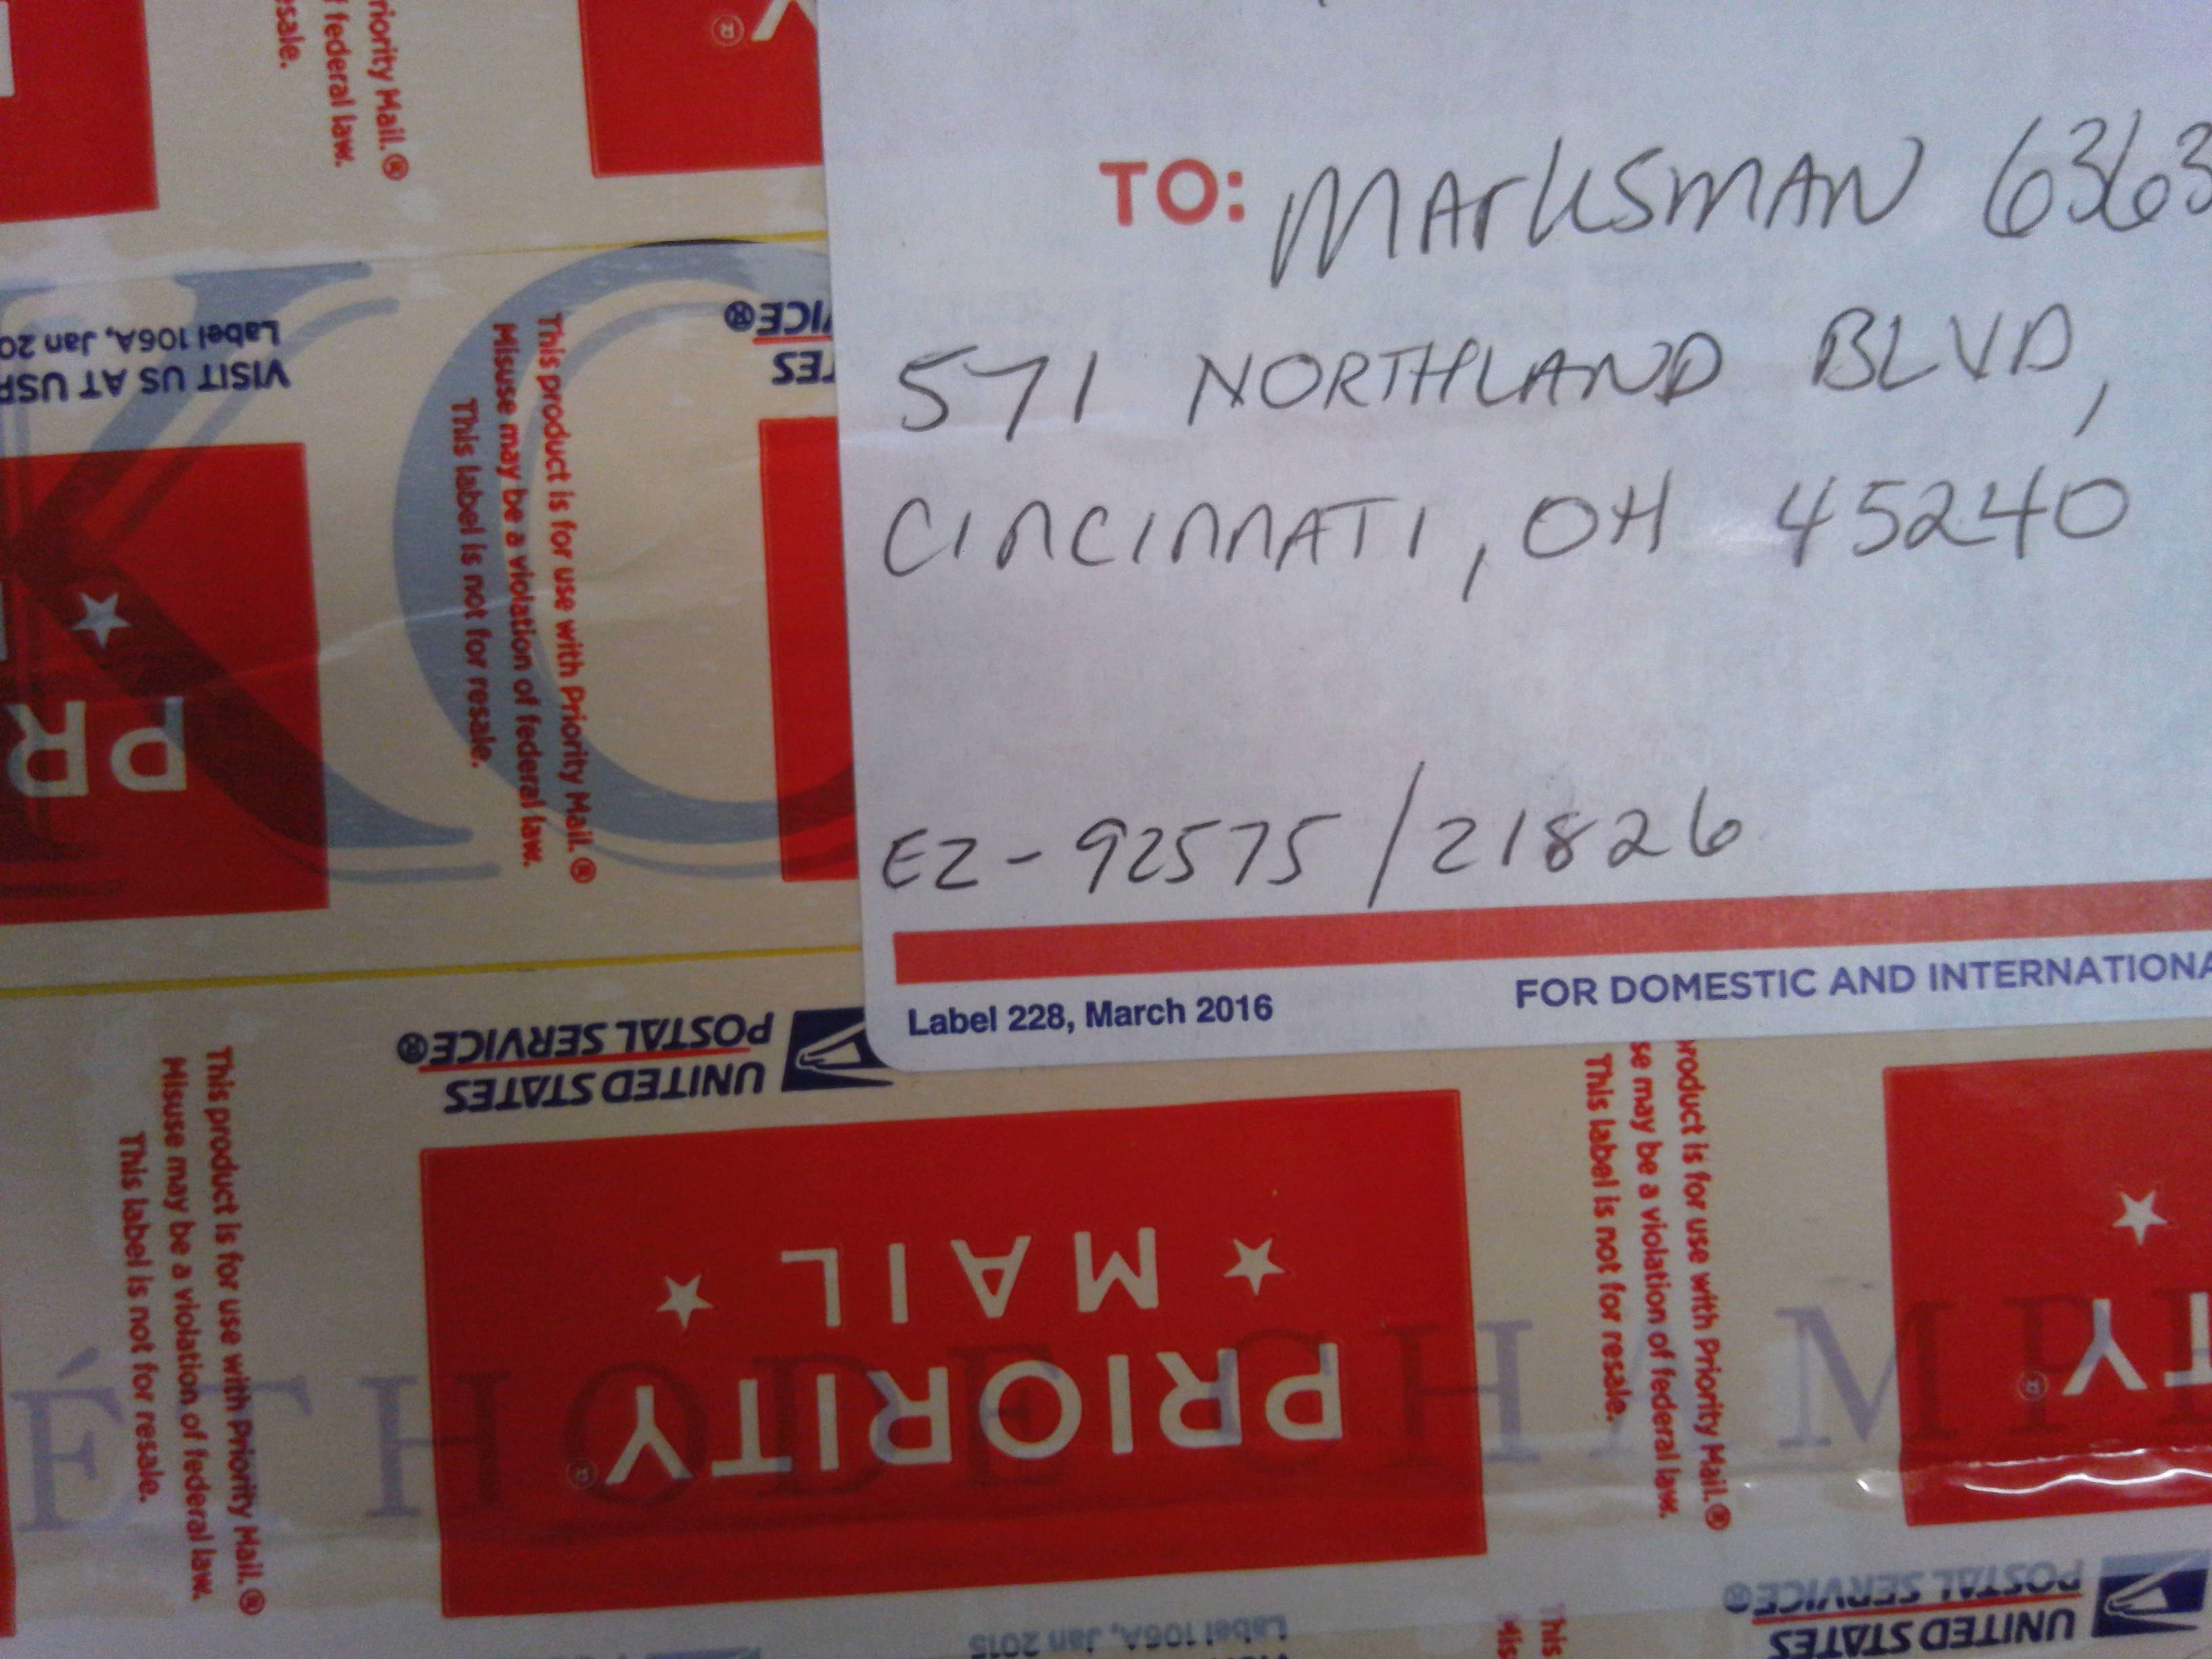 TO: MARKSMAN 6363
571 NORTHLAND BLVD,
CINCINNATI, OH 45240
EZ-92575/21826
Label 228, March 2016
FOR DOMESTIC AND INTERNATIONA
riority Mail.®
federal law.
esale.
®
VICE®
TES
Label 106A, Jan 20
VISIT US AT USP
This product is for use with Priority Mail.®
Misuse may be a violation of federal law.
This label is not for resale.
PR
UNITED STATES
POSTAL SERVICE®
This product is for use with Priority Mail.®
Misuse may be a violation of federal law.
This label is not for resale.
PRIORITY®
MAIL
roduct is for use with Priority Mail.®
se may be a violation of federal law.
This label is not for resale.
TY®
ÉTHODE CHAMP
Label 106A, Jan 2015
This
Mis
UNITED STATES
POSTAL SERVICE®